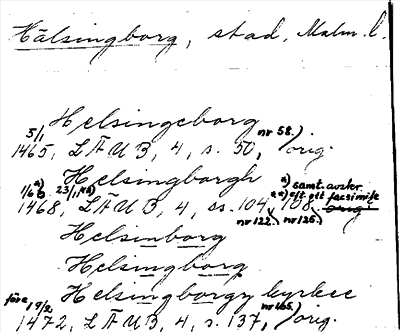 Hälsingborg, stad, Malm. l.
Helsingeborg
5/1 1465, LÄUB, 4, s. 50, nr 58.) orig.
Helsingborgh
1/6 *) 23/11 **) *) samt. avskr.
**) eft. ett facsimile
1468, LÄUB, 4, ss. 104, 108. orig.
nr 122. nr 126.)
Helsinborg
Helsingborg
Helsingborgx kyrkee
före 19/2 1472, LÄUB, 4, s. 137, nr 165.) orig.